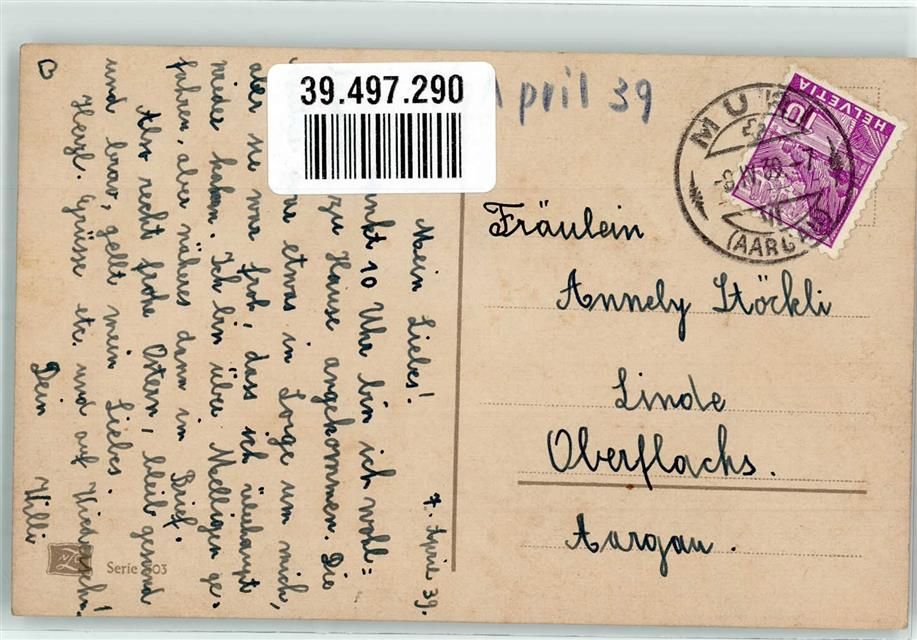 39.497.290
April 39
MURI
(AARG
-8.IV.39.-7
HELVETIA
10
Fräulein
Annely Stöckli
Linde
Oberflachs.
Aargau.
7. April 39.
Mein Liebes!
nkt 10 Uhr bin ich wohl=
zu Hause angekommen. Die
etwas in Sorge um mich,
aber sie war froh, dass ich überhaupt
wieder kam. Ich bin über Mellingen ge=
fahren, aber näheres dann im Brief.
Also recht frohe Ostern, bleib gesund
und brav, gellt mein Liebes.
Herzl. Grüsse etc. und auf Wiedersehn!
Dein Willi
Serie 303